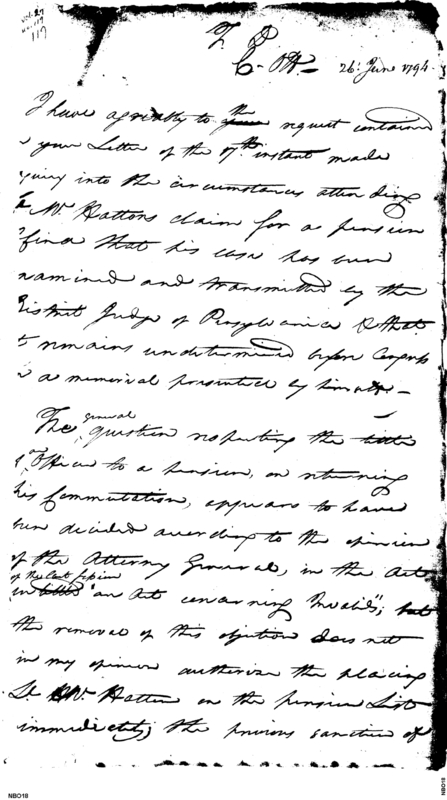 117
T D
C. Off 26: June 1794.
I have agreeably to the request contained
your Letter of the 17th instant made
into the circumstances attending
Mr. Hattons claim for a pension
find that his case has been
examined and transmitted by the
District Judge of Pensylvania & that
remains undetermined before Congress
a memorial presented by him
The general question respecting the title
Officer to a pension, on returning
his Commutation, appears to have
been decided according to the opinion
of the Attorney General, in the Act
of the last session
in "an Act concerning Invalids"; but
the removal of this objection does not
in my opinion authorise the placing
Lt Mr. Hatton on the pension List
immediately; the previous sanction of
NBO18
NBO18